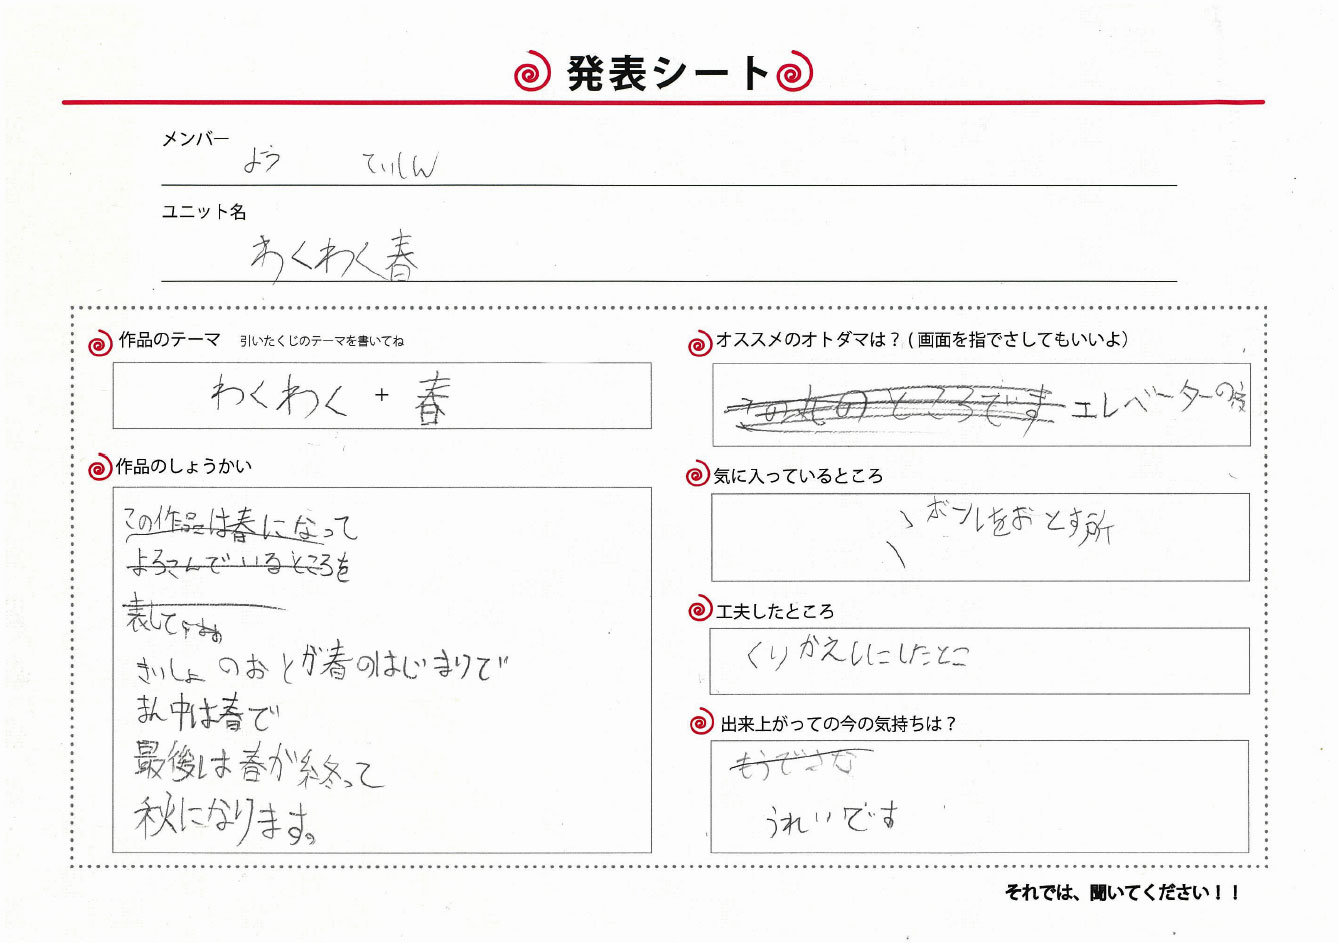 発表シート
メンバー
よう ていしん
ユニット名
わくわく春
作品のテーマ 引いたくじのテーマを書いてね
わくわく + 春
作品のしょうかい
この作品は春になって
よろこんでいるところを
表して
さいしょのおとが春のはじまりで
まん中は春で
最後は春が終って
秋になります。
オススメのオトダマは？(画面を指でさしてもいいよ)
このもののところです エレベーターの
気に入っているところ
ボールをおとす所
工夫したところ
くりかえしにしたとこ
出来上がっての今の気持ちは？
うれいです
それでは、聞いてください！！